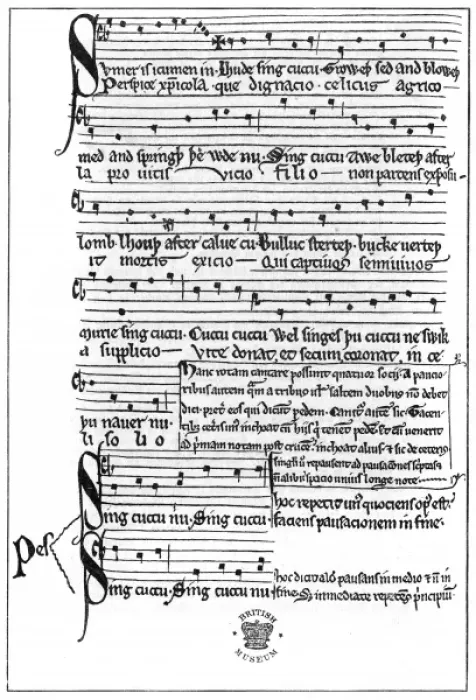 Sumer is icumen in. Lhude sing cuccu. Groweþ sed and bloweþ
Perspice xp̄icola. que dignacio. celicus agrico
med and springþ þe wde nu. Sing cuccu Awe bleteþ after
la pro uitis vicio filio non parcens exposu-
lomb lhouþ after calue cu. Bulluc sterteþ. bucke uerteþ
it mortis exicio Qui captiuos semiuiuos
murie sing cuccu. Cuccu cuccu Wel singes þu cuccu ne swik
a supplicio Vite donat. et secum coronat. in ce
þu nauer nu.
li solio
Hanc rotam cantare possunt quatuor socij. A paucio
ribus autem q̄m a tribus ul̄ saltem duobus nō debet
dici. p̄ter eos qui dicūt pedem. Canit᷑ autē sic. Tacen
tibꝫ ceteris unꝰ inchoat cū hijs q̄ tenēt pedē. Et cū uenerit
ad p̄mam notam post crucē. inchoat alius. & sic de ceteris
singuli ū repausent ad pausaciones scriptas
n̄ alibi spacio unius longe note
Pes
Sing cuccu nu. Sing cuccu.
hoc repetit unꝰ quociens opꝰ est.
faciens pausacionem in fine.
Sing cuccu. Sing cuccu nu
hoc dicit aliꝰ pausans in medio & n̄ in
fine. Sꝫ immediate repetēs p̄ncipiū.
BRITISH MUSEUM